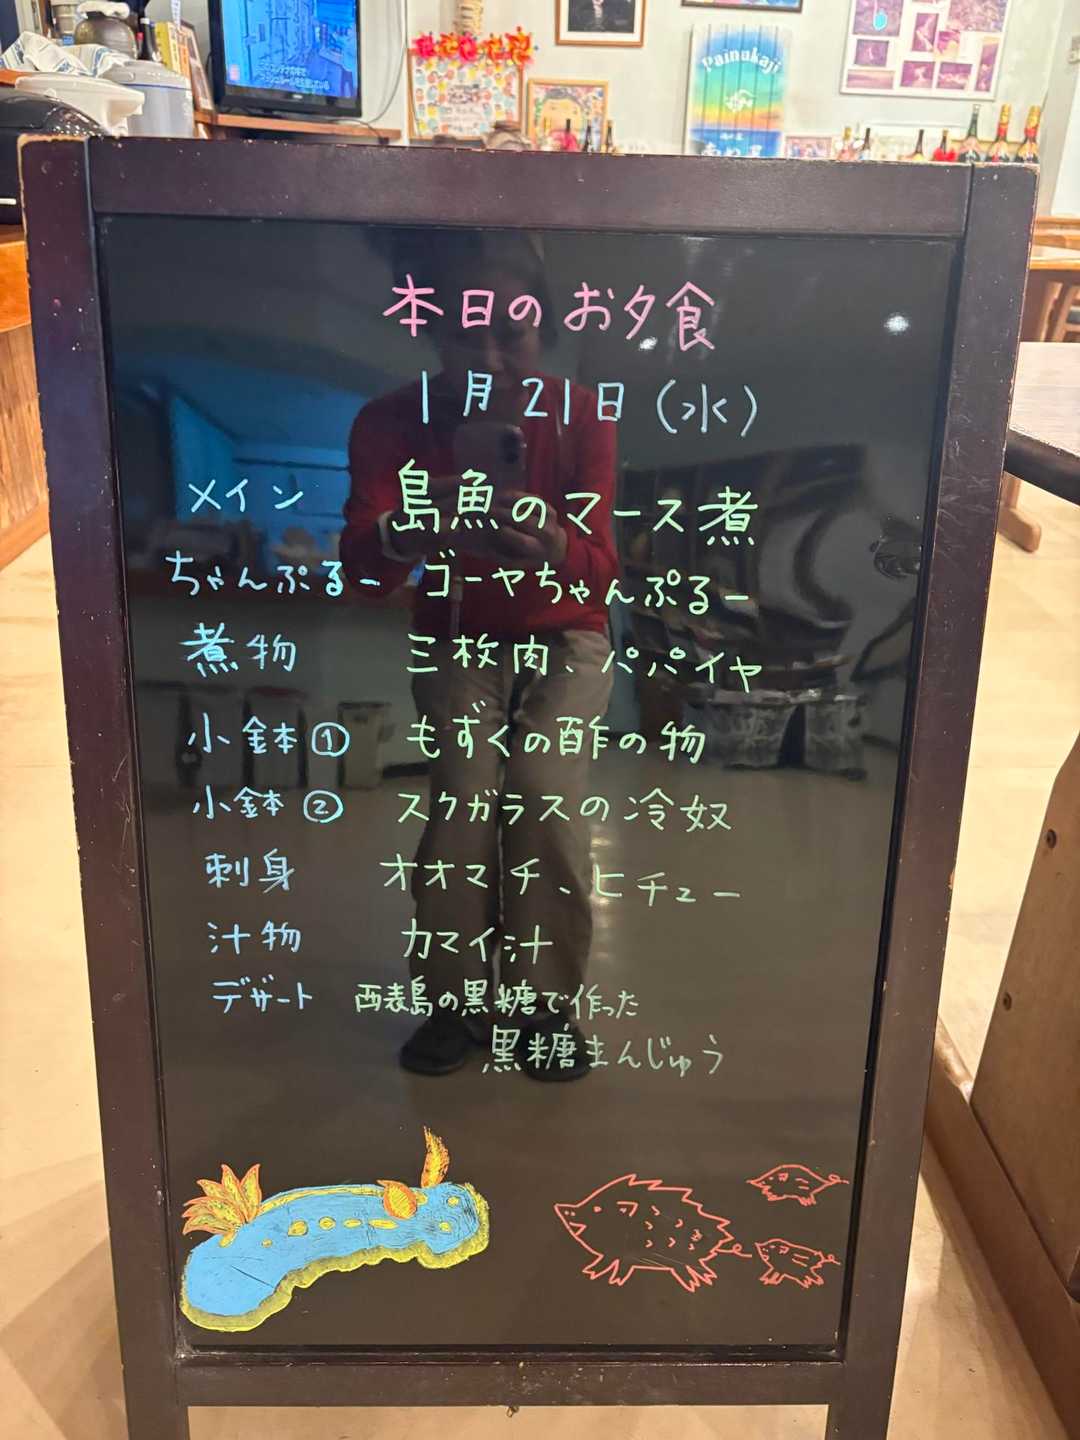 Painukaji
本日のお夕食
1月21日（水）
メイン 島魚のマース煮
ちゃんぷるー ゴーヤちゃんぷるー
煮物 三枚肉、パパイヤ
小鉢① もずくの酢の物
小鉢② スクガラスの冷奴
刺身 オオマチ、ヒチュー
汁物 カマイ汁
デザート 西表島の黒糖で作った
黒糖まんじゅう